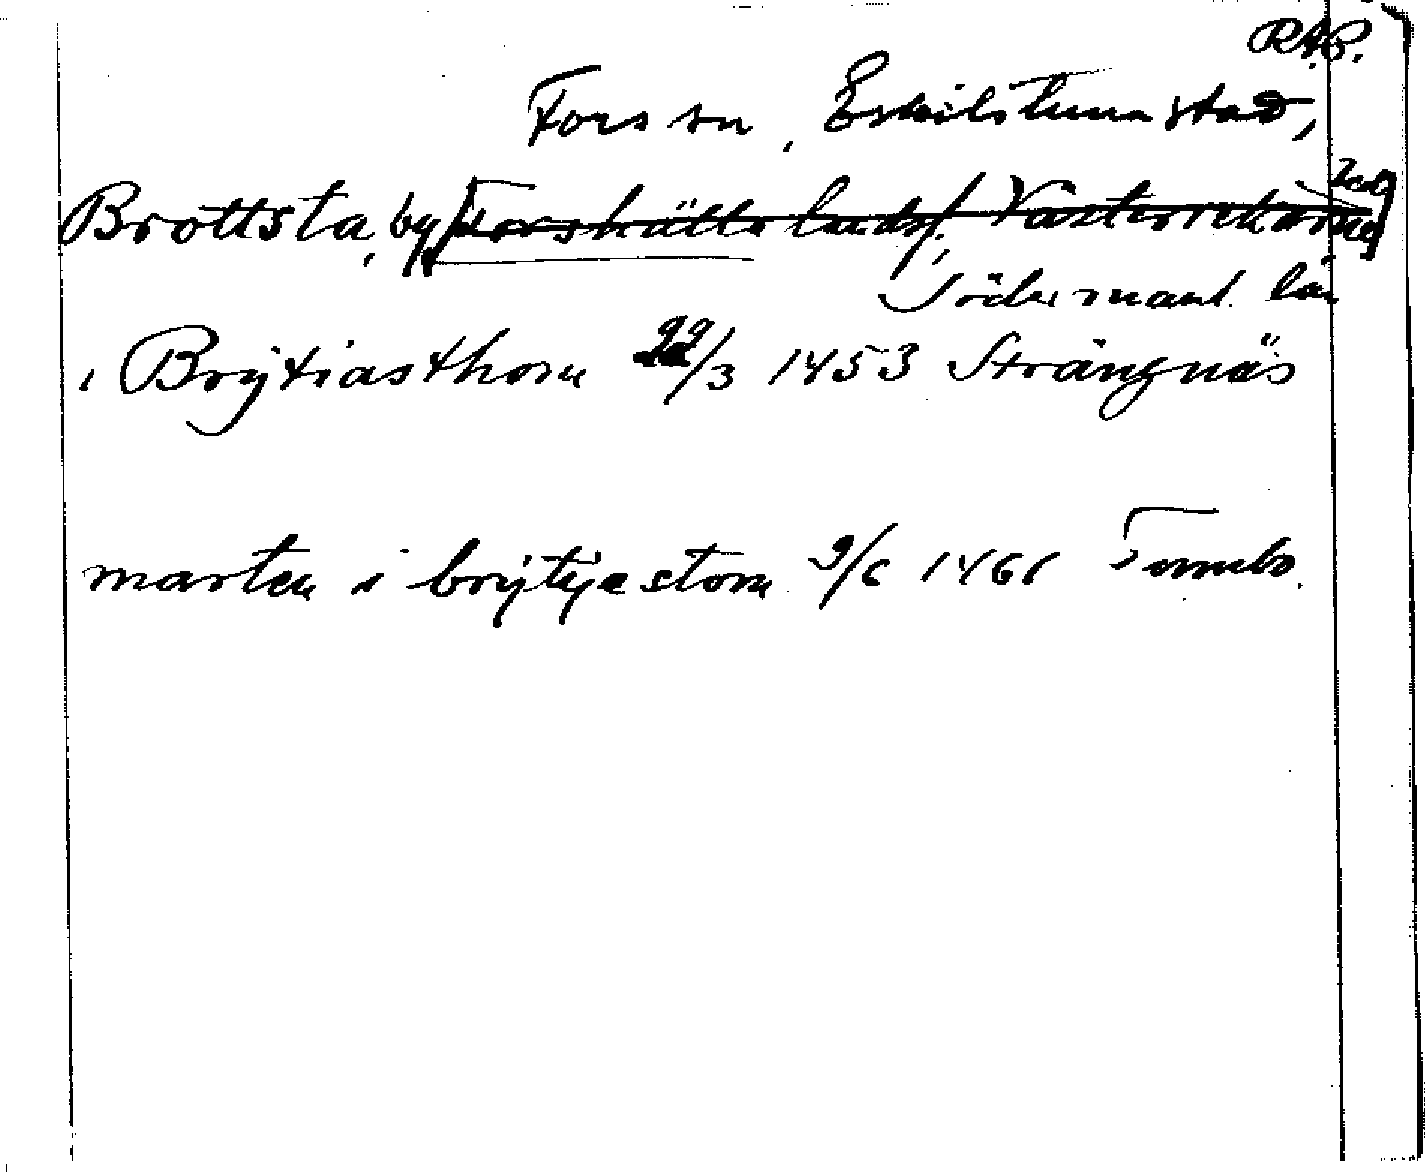 RAP.
Fors sn, Eskilstuna stad,
Brottsta, by, Forskälla landsf. Västerrekarne hd
Södermanl. län
i Brÿtiasthom 22/3 1453 Strängnäs
marten i brÿtÿastom 9/6 1461 Tumbo.